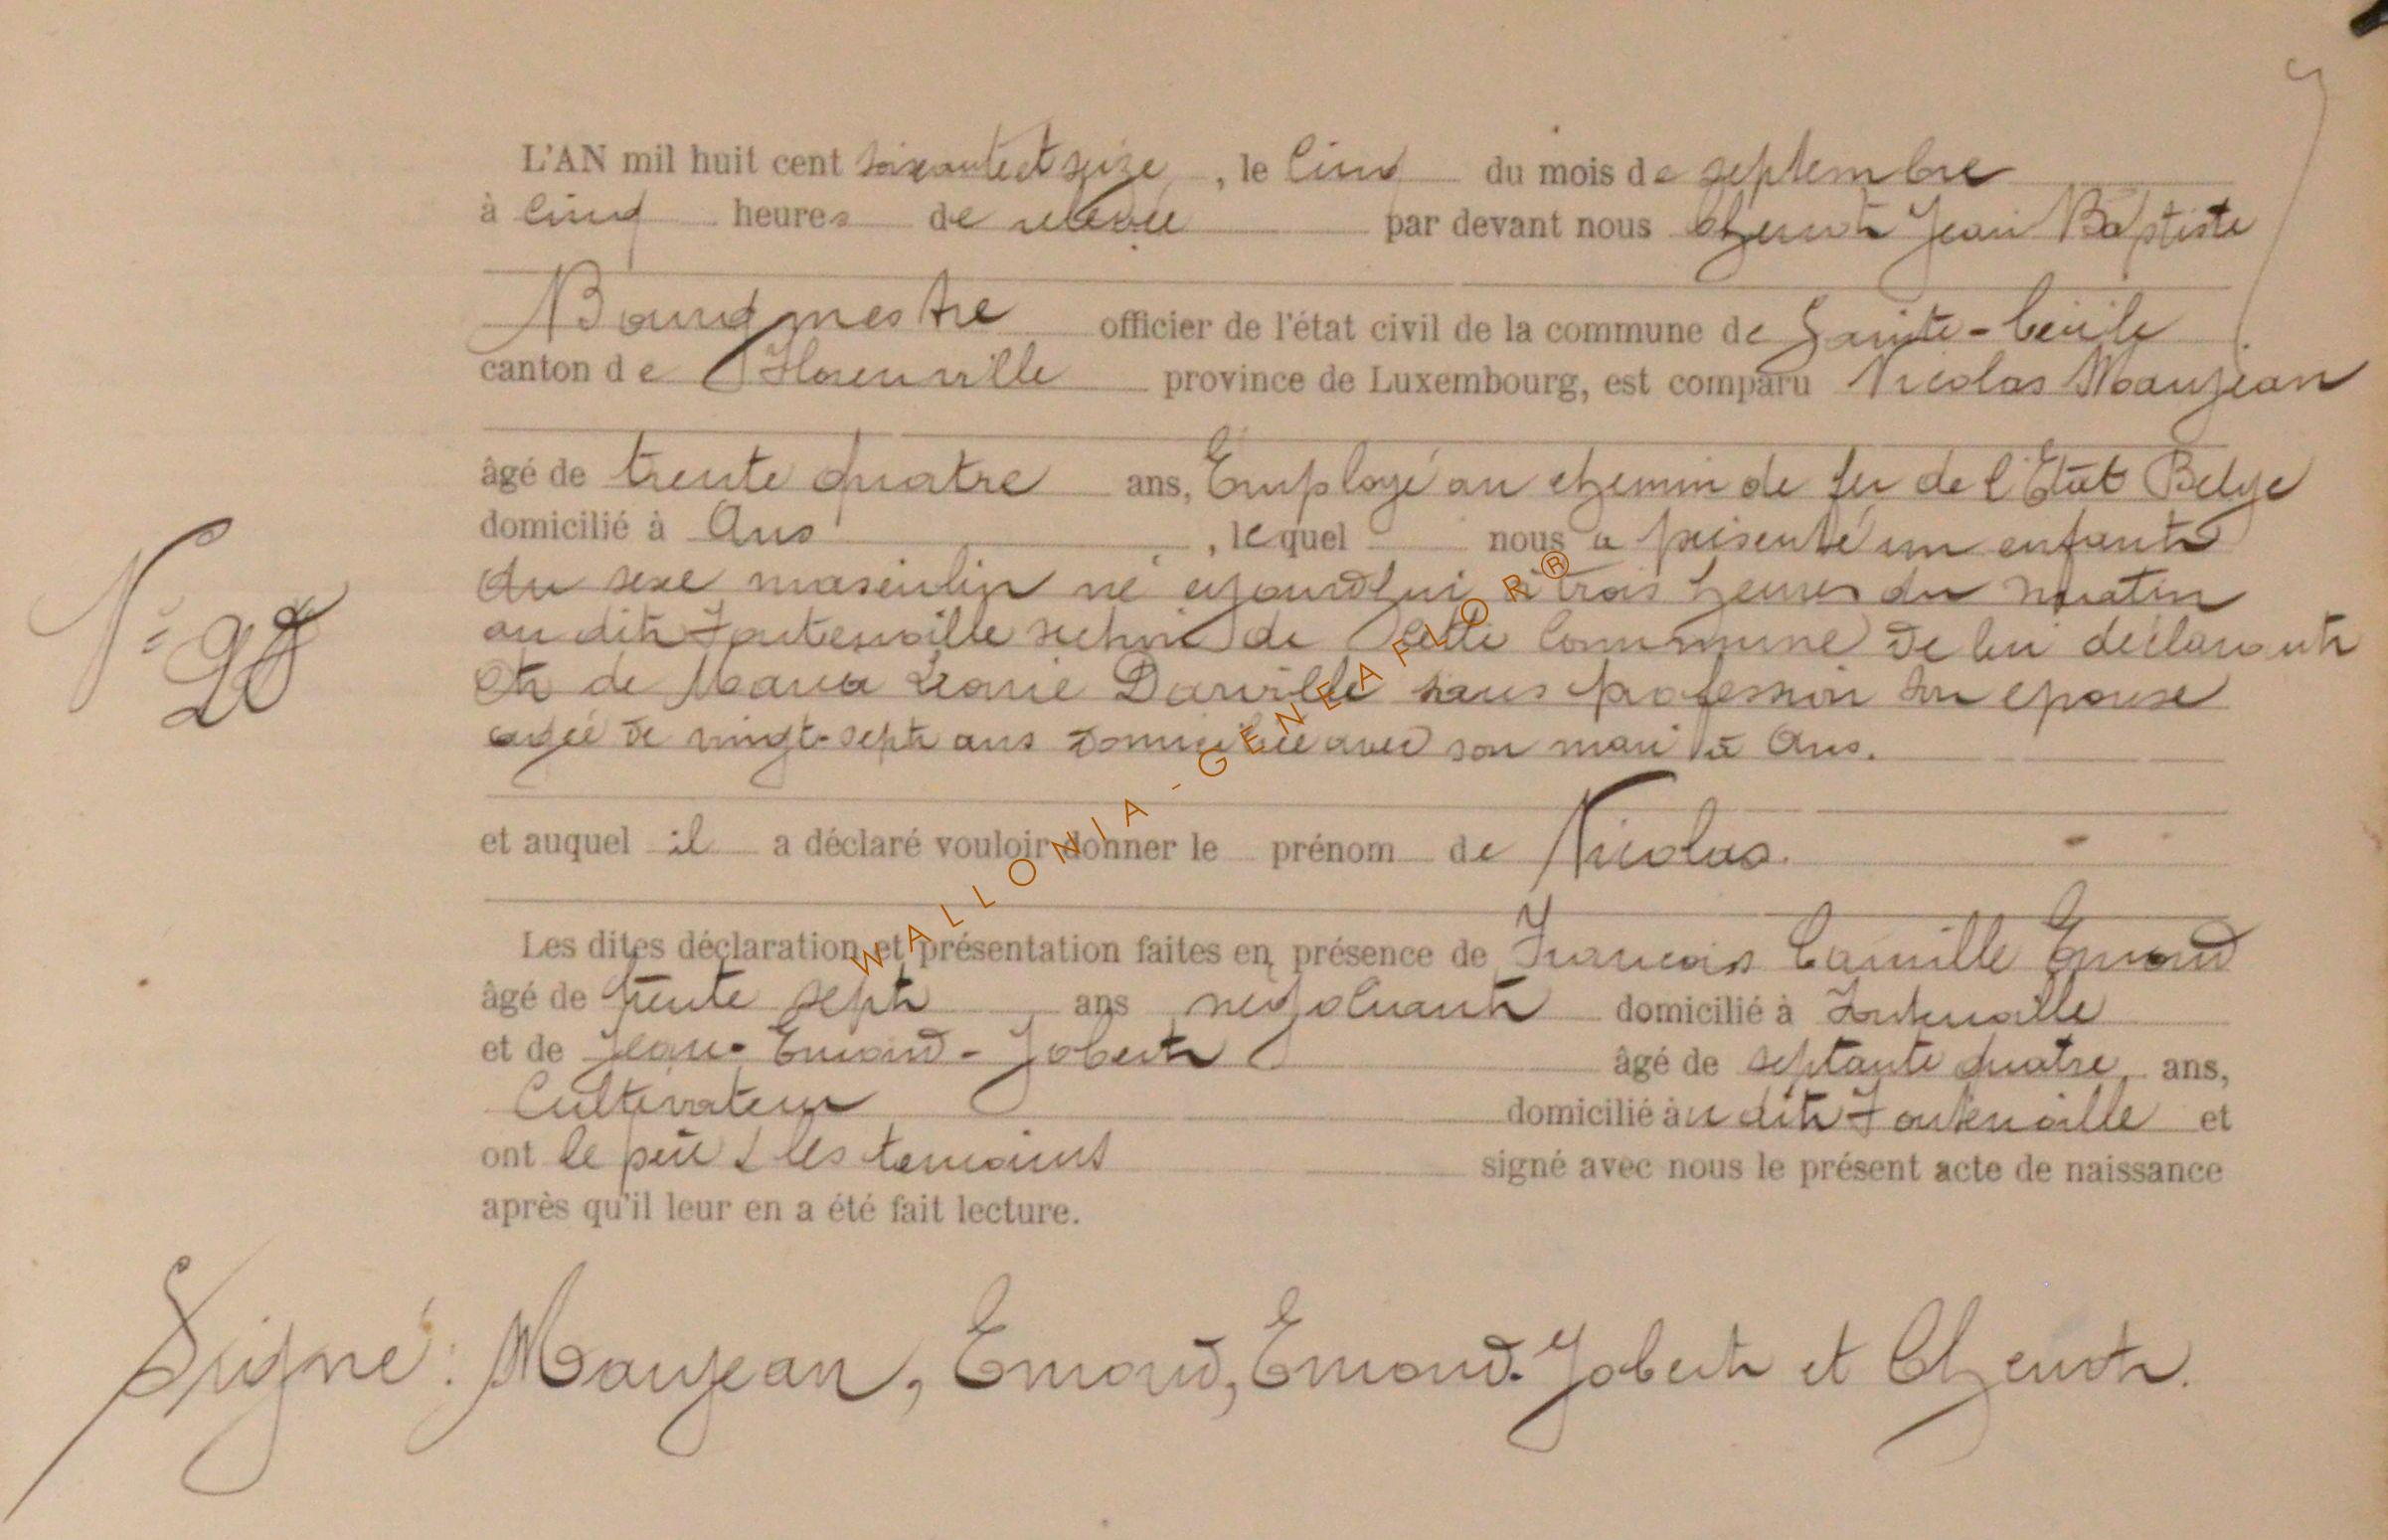 L'AN mil huit cent soixante et seize, le Cinq du mois de septembre
à cinq heures de relevée par devant nous Chenot Jean Baptiste
Bourgmestre officier de l'état civil de la commune de Sainte-Cécile
canton de Florenville province de Luxembourg, est comparu Nicolas Maujean
âgé de trente quatre ans, Employé au chemin de fer de l'Etat Belge
domicilié à Ans, lequel nous a présenté un enfant
du sexe masculin né aujourd'hui à trois heures du matin
au dit Fontenoille section de cette Commune de lui déclarant
Et de Maria Léonie Darville sans profession son épouse
agée de vingt-sept ans domiciliée avec son mari à Ans.
N°
et auquel il a déclaré vouloir donner le prénom de Nicolas.
Les dites déclaration et présentation faites en présence de Francois Camille Emond
âgé de trente sept ans négociant domicilié à Fontenoille
et de Jean-Emond-Jobert âgé de septante quatre ans,
Cultivateur domicilié au dit Fontenoille et
ont le père & les temoins signé avec nous le présent acte de naissance
après qu'il leur en a été fait lecture.
Signé: Maujean, Emond, Emond-Jobert et Chenot.
WALLONIA - GENEAFLOR®